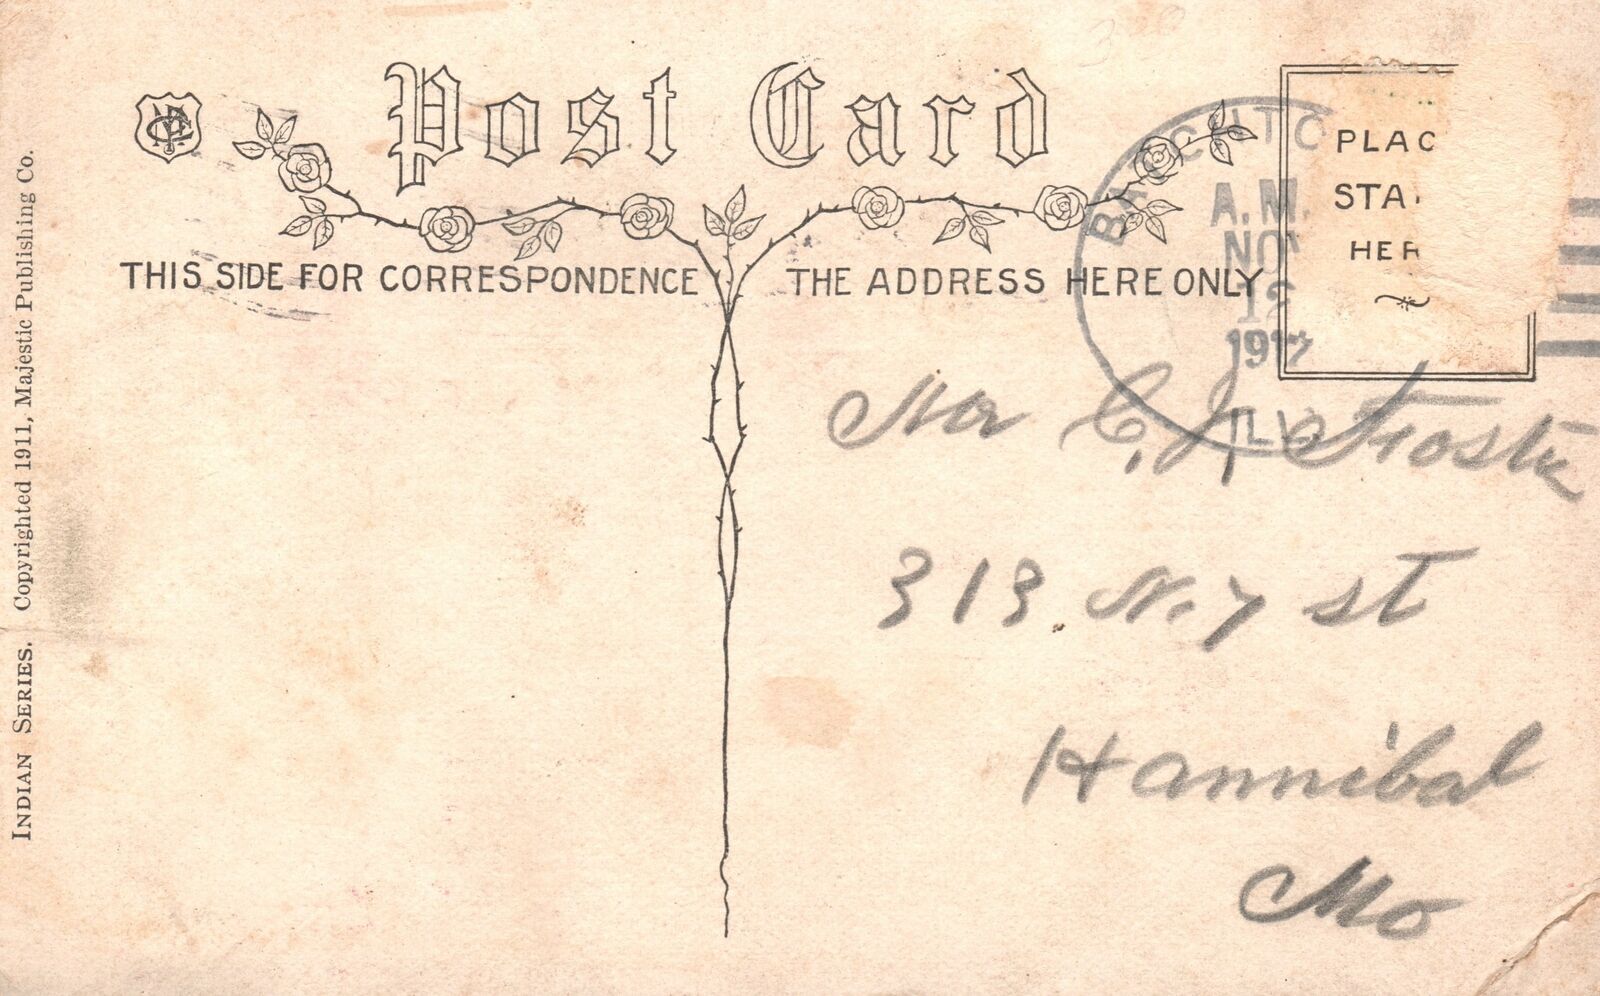 Post Card
THIS SIDE FOR CORRESPONDENCE
THE ADDRESS HERE ONLY
PLAC
STA
HER
A.M.
NOV
12
191
ILL
Mr C. J.
313. N. 7 st
Hannibal
Mo
INDIAN SERIES. Copyrighted 1911, Majestic Publishing Co.